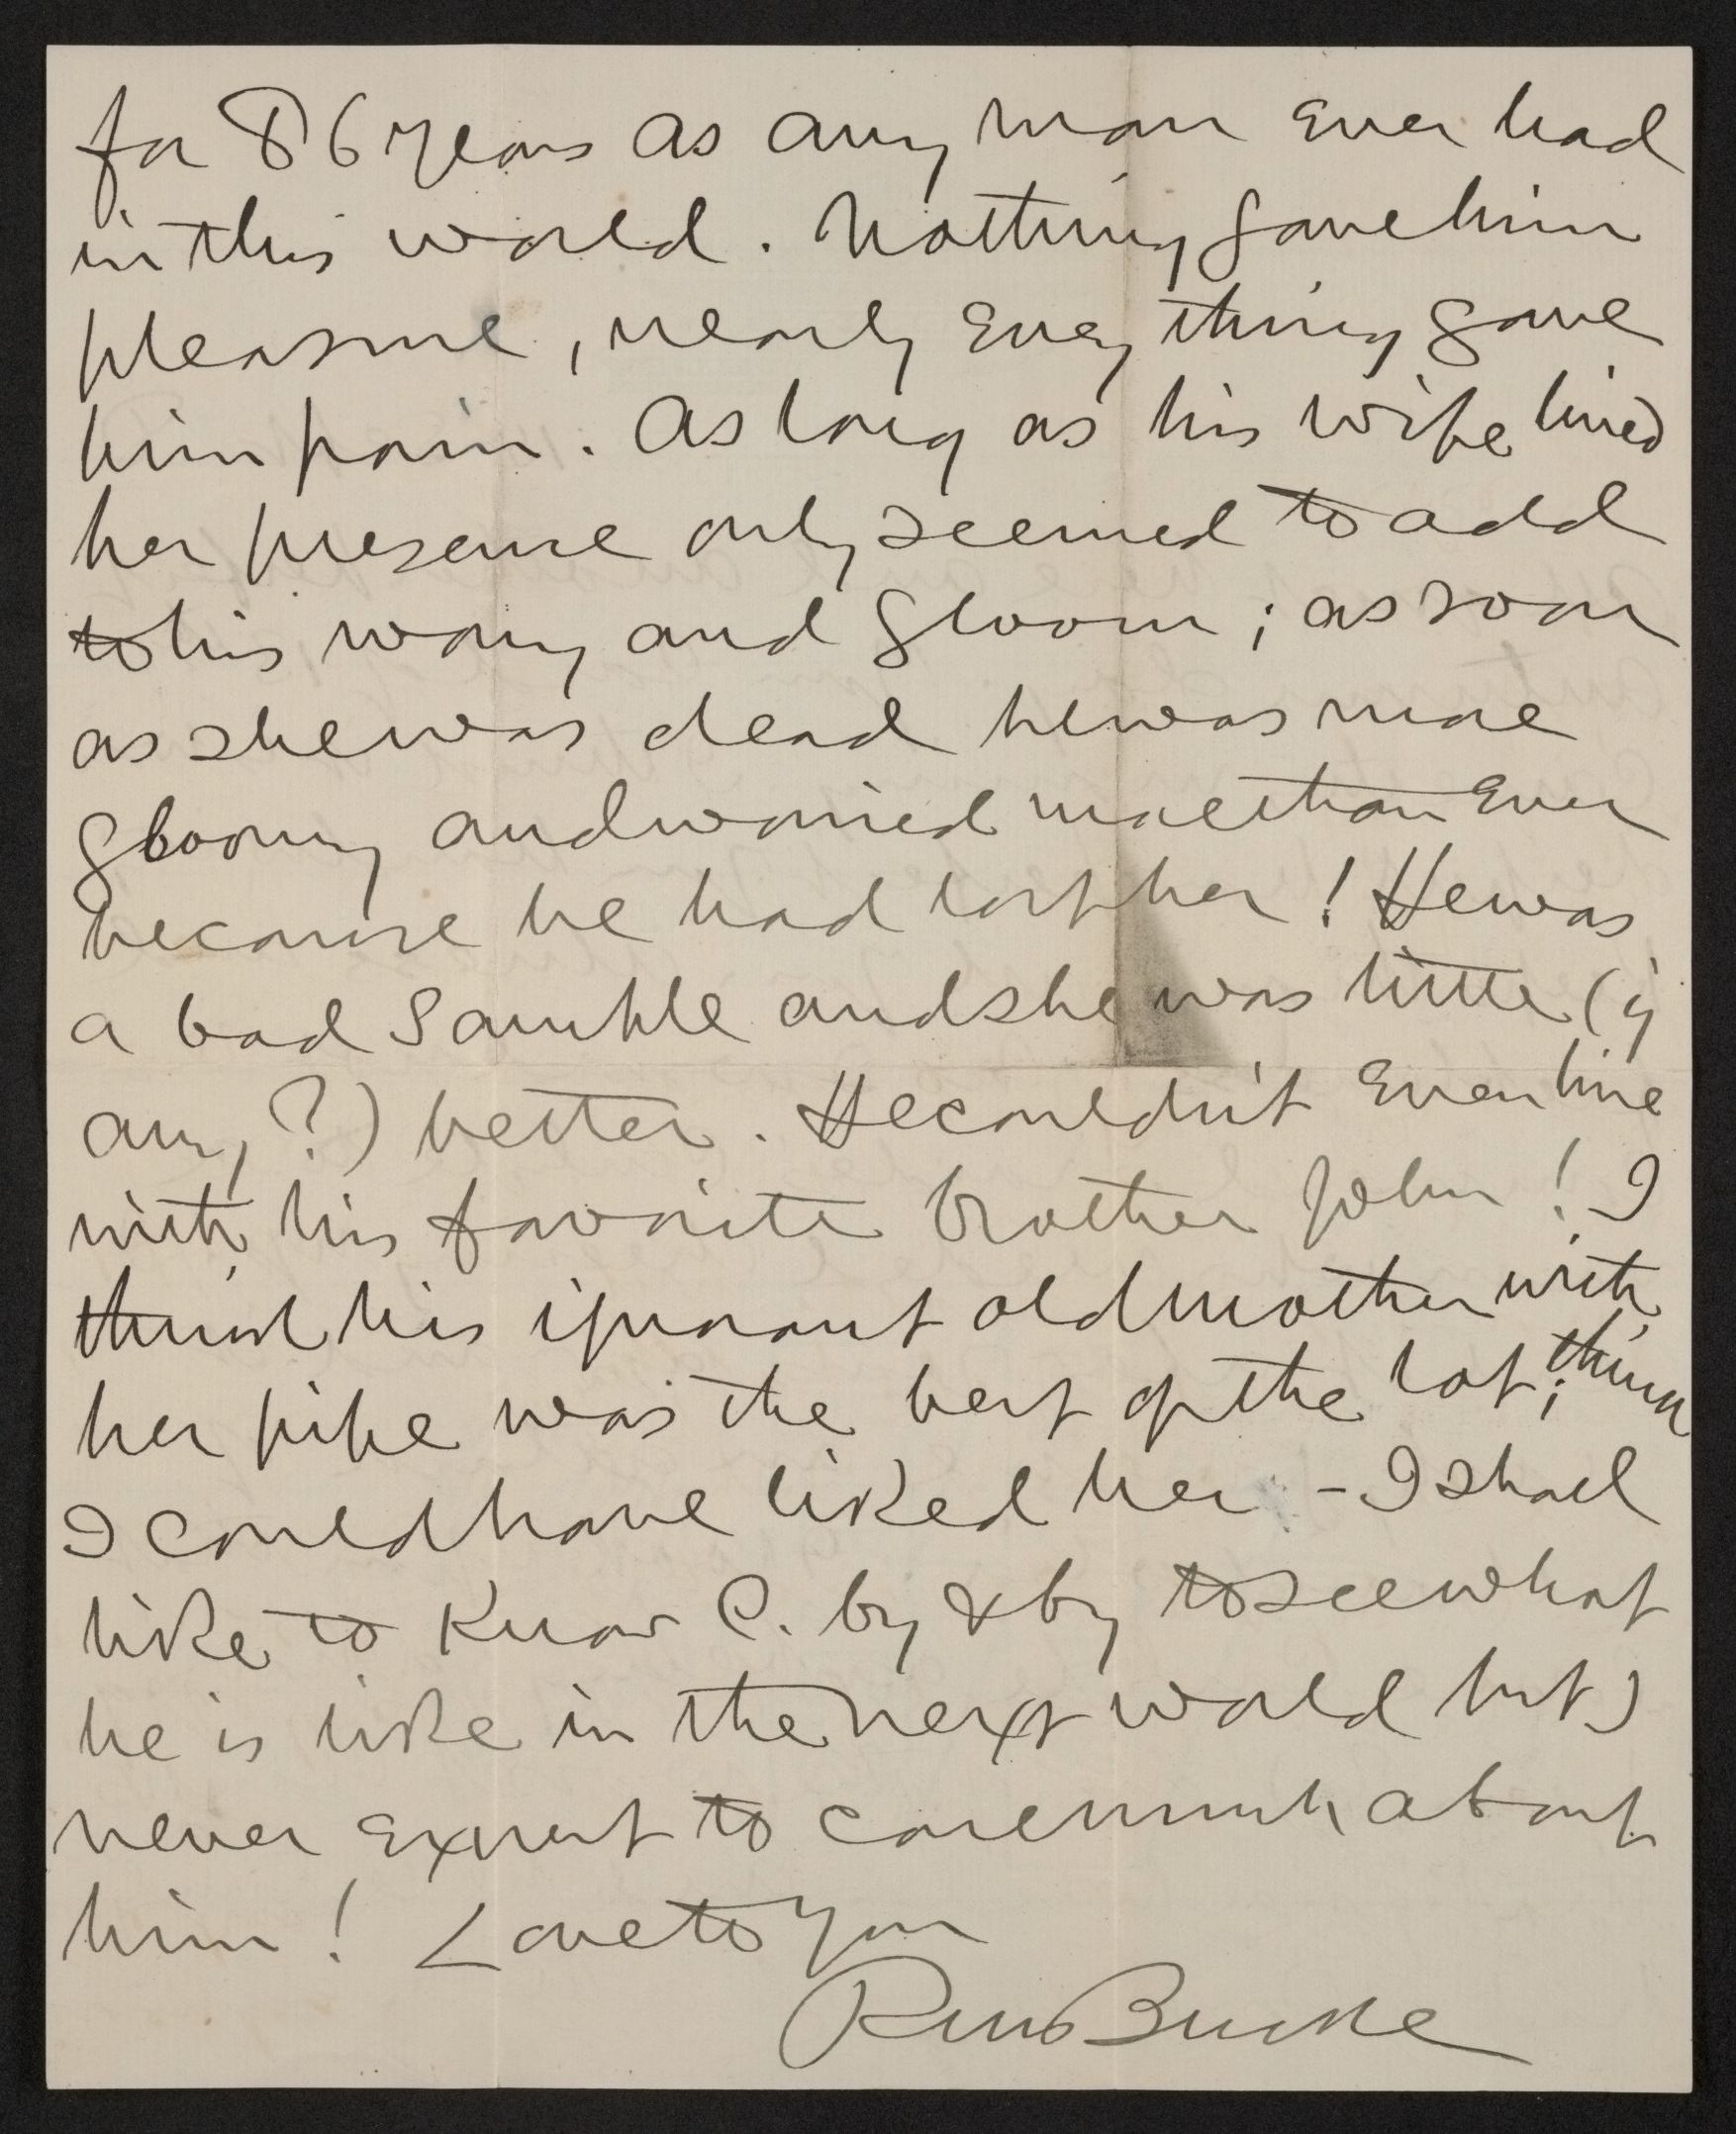 for 86 years as any man ever had
in this world. Nothing gave him
pleasure, nearly every thing gave
him pain. As long as his wife lived
her presence only seemed to add
to his worry and gloom; as soon
as she was dead he was more
gloomy and worried more than ever
because he had lost her! He was
a bad sample and she was little (if
any?) better. He couldn't even live
with his favorite brother John! I
think his ignorant old mother with
her pipe was the best of the lot; think
I could have liked her - I shall
like to know C. by & by to see what
he is like in the next world but I
never expect to care much about
him! Love to you